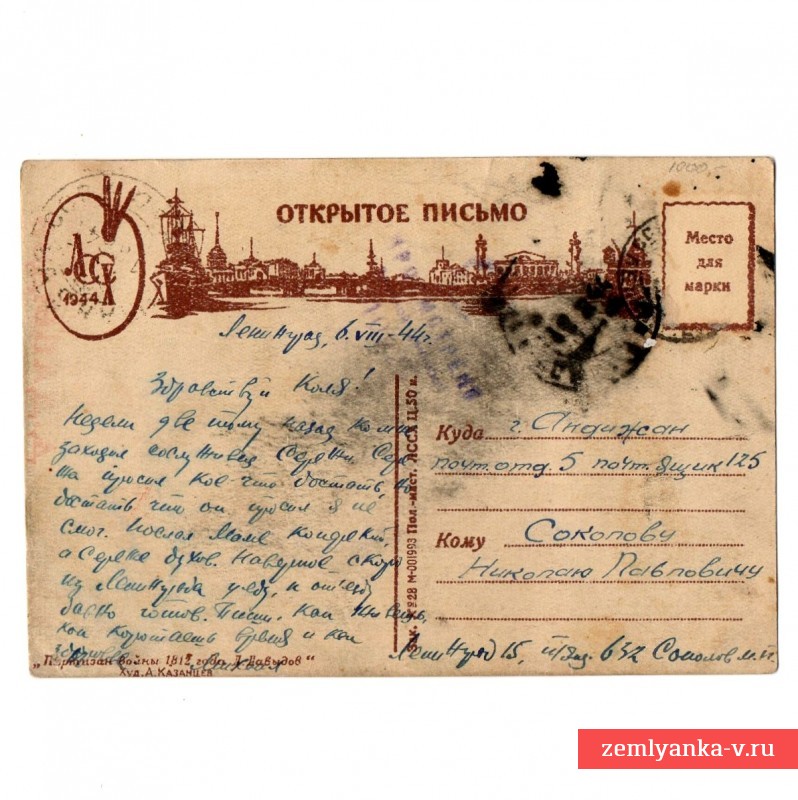 1000,-
ОТКРЫТОЕ ПИСЬМО
ЛССХ
1944
Место
для
марки
Ленинград, 6.VIII-44г.
Здравствуй Коля!
Недели две тому назад ко мне
заходил сослуживец Сережи. Сере-
жа просил кое-что достать, но
достать что он просил я не
смог. Послал Маме конфект,
а Сереже духов. Наверное скоро
из Ленинграда уеду, к отъезду
давно готов. Пиши, как живешь,
как коротаешь время и как
здоровье.
Куда г. Андижан
почт. отд. 5 почт. ящик 125
Кому Соколову
Николаю Павловичу
Ленинград 15, п/ящ. 632 Соколов М.П.
Зак. № 28 М-001993 Пол.-маст. ЛССХ Ц. 50 к.
„Партизан войны 1812 года Д. Давыдов"
Худ. А. Казанцев
zemlyanka-v.ru